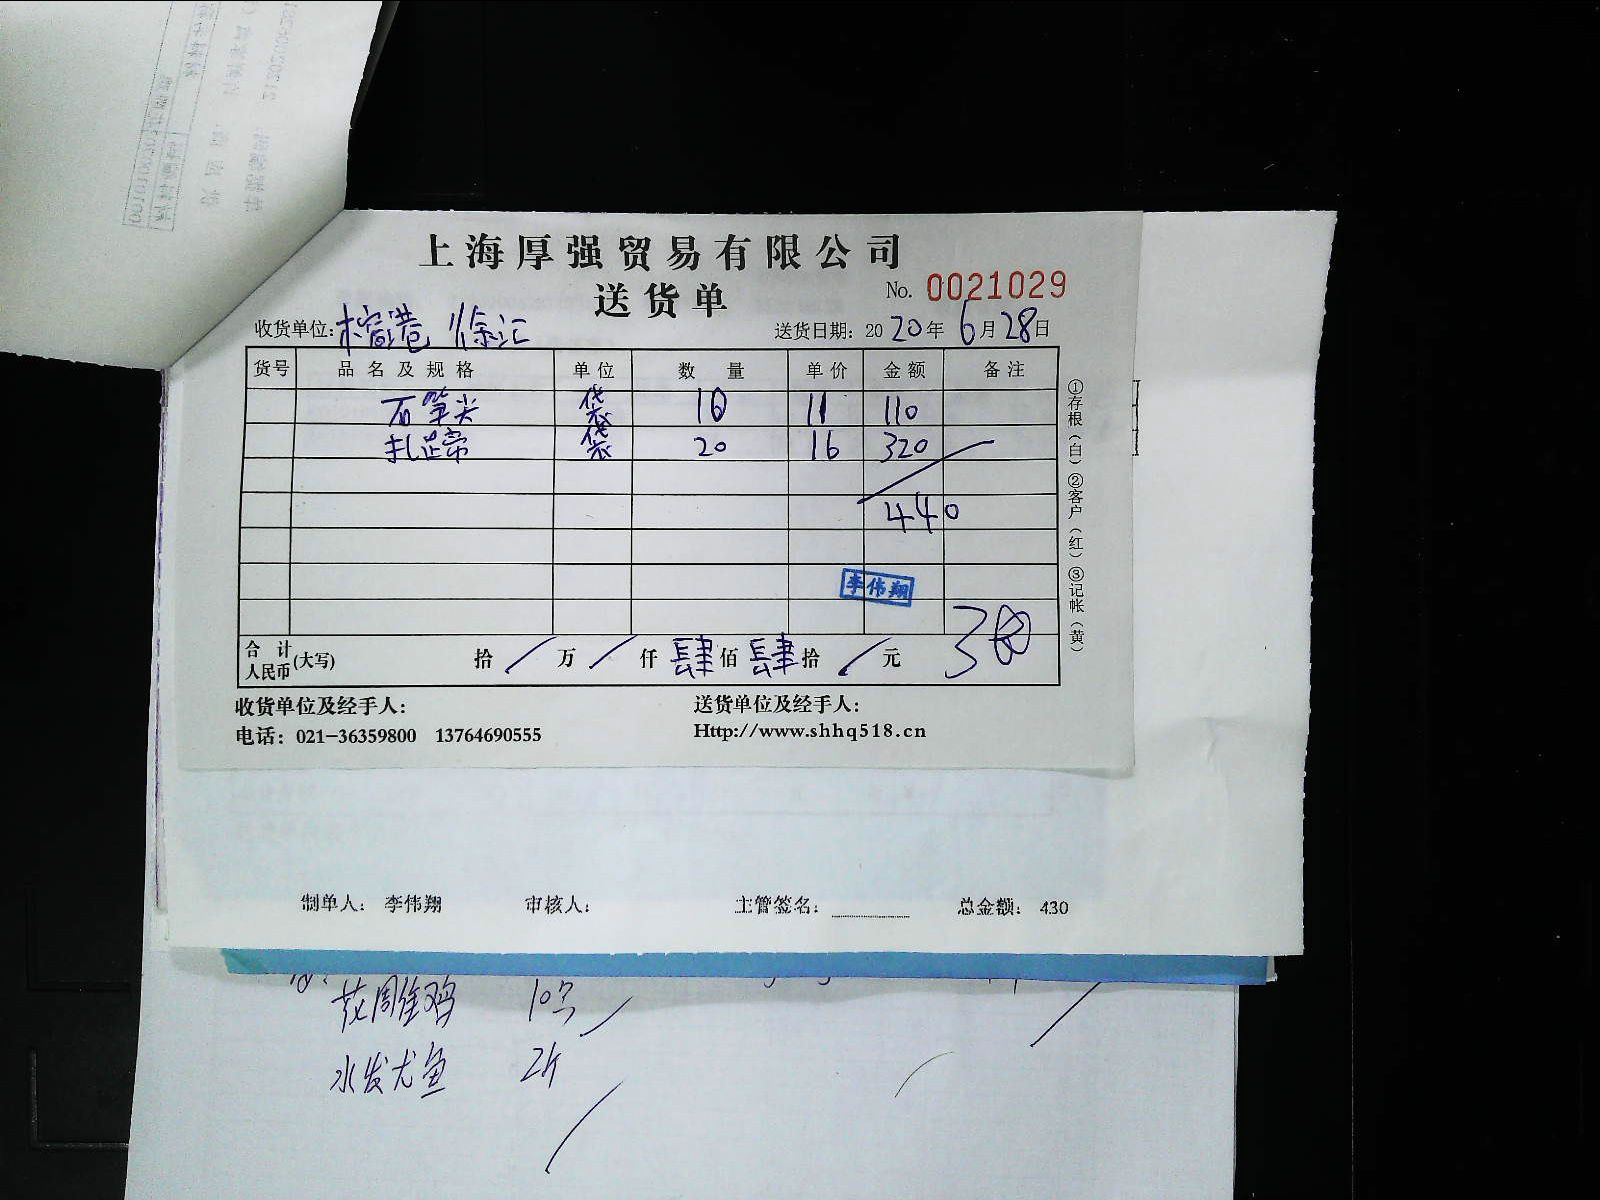 上海厚强贸易有限公司
送货单
No. 0021029
收货单位: 榕港 徐汇
送货日期: 2020年6月28日
货号 品名及规格 单位 数量 单价 金额 备注
石笋尖 袋 10 11 110
扎蹄 袋 20 16 320
440
李伟翔
合计人民币(大写) 拾 / 万 / 仟 肆 佰 肆 拾 / 元
收货单位及经手人:
送货单位及经手人:
电话: 021-36359800 13764690555
Http://www.shhq518.cn
①存根(白)②客户(红)③记帐(黄)
制单人: 李伟翔 审核人: 主管签名: 总金额: 430
花雕鸡 10只
水发尤鱼 2斤